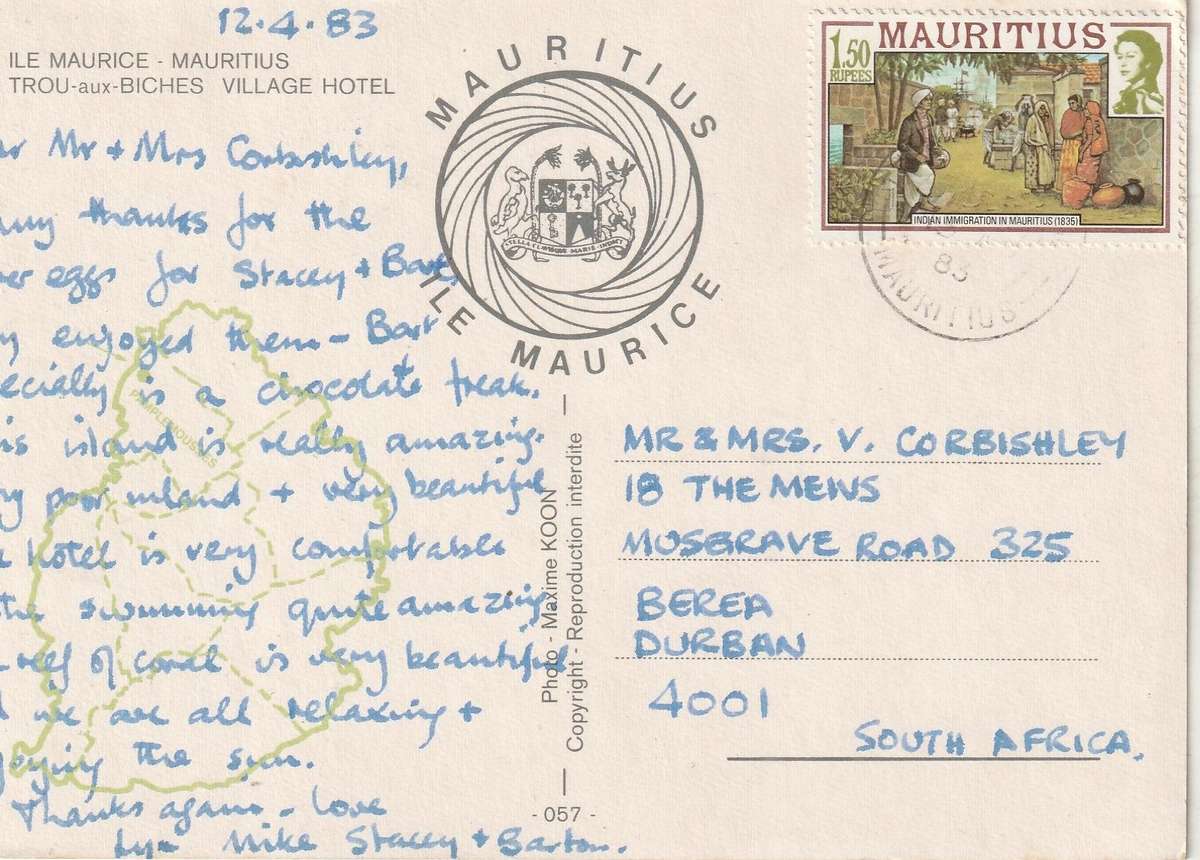 12.4.83
ILE MAURICE - MAURITIUS
TROU-aux-BICHES VILLAGE HOTEL
Mr + Mrs Corbishley,
thanks for the
eggs for Stacey + Bart,
enjoyed them - Bart
is a chocolate freak.
island is really amazing.
poor inland + very beautiful
hotel is very comfortable
the swimming quite amazing
reef of coral is very beautiful
we are all relaxing +
the sun.
Thanks again - love
Lyn Mike Stacey + Barton.
PAMPLEMOUSSES
MAURITIUS
STELLA CLAVISQUE MARIS INDICI
ILE MAURICE
Photo - Maxime KOON
Copyright - Reproduction interdite
- 057 -
MAURITIUS
1.50
RUPEES
INDIAN IMMIGRATION IN MAURITIUS (1835)
83
MAURITIUS
MR & MRS. V. CORBISHLEY
18 THE MEWS
MUSGRAVE ROAD 325
BEREA
DURBAN
4001
SOUTH AFRICA.